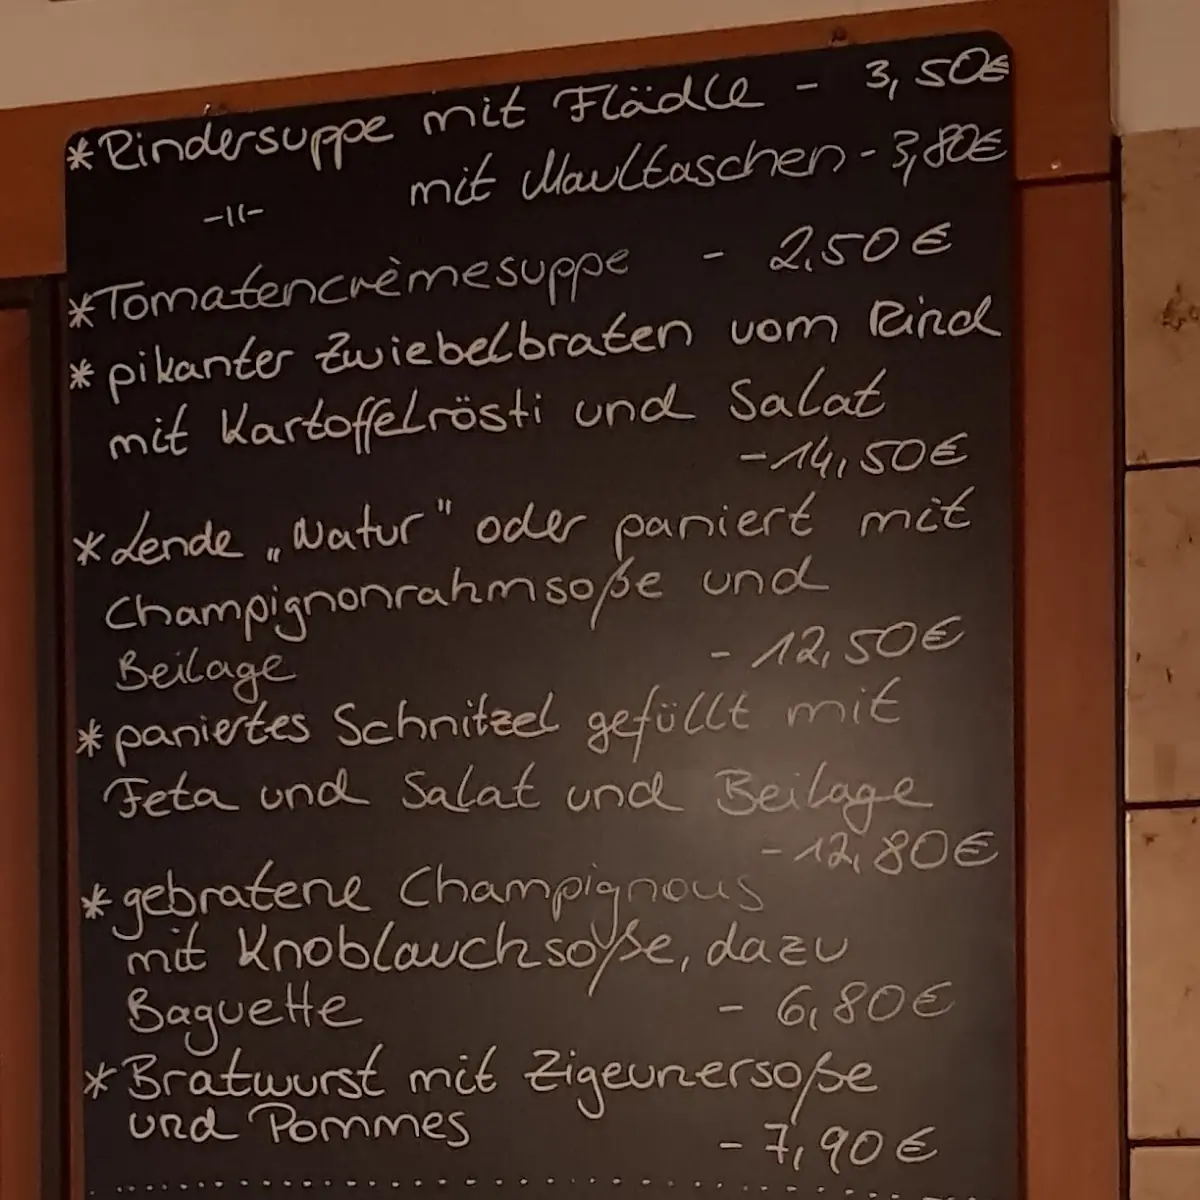 *Rindersuppe mit Flädle - 3,50€
-11- mit Maultaschen - 3,80€
*Tomatencrèmesuppe - 2,50€
* pikanter Zwiebelbraten vom Rind
mit Kartoffelrösti und Salat
- 14,50€
* Lende „Natur" oder paniert mit
Champignonrahmsoße und
Beilage - 12,50€
* paniertes Schnitzel gefüllt mit
Feta und Salat und Beilage
- 12,80€
* gebratene Champignons
mit Knoblauchsoße, dazu
Baguette - 6,80€
* Bratwurst mit Zigeunersoße
und Pommes - 7,90€